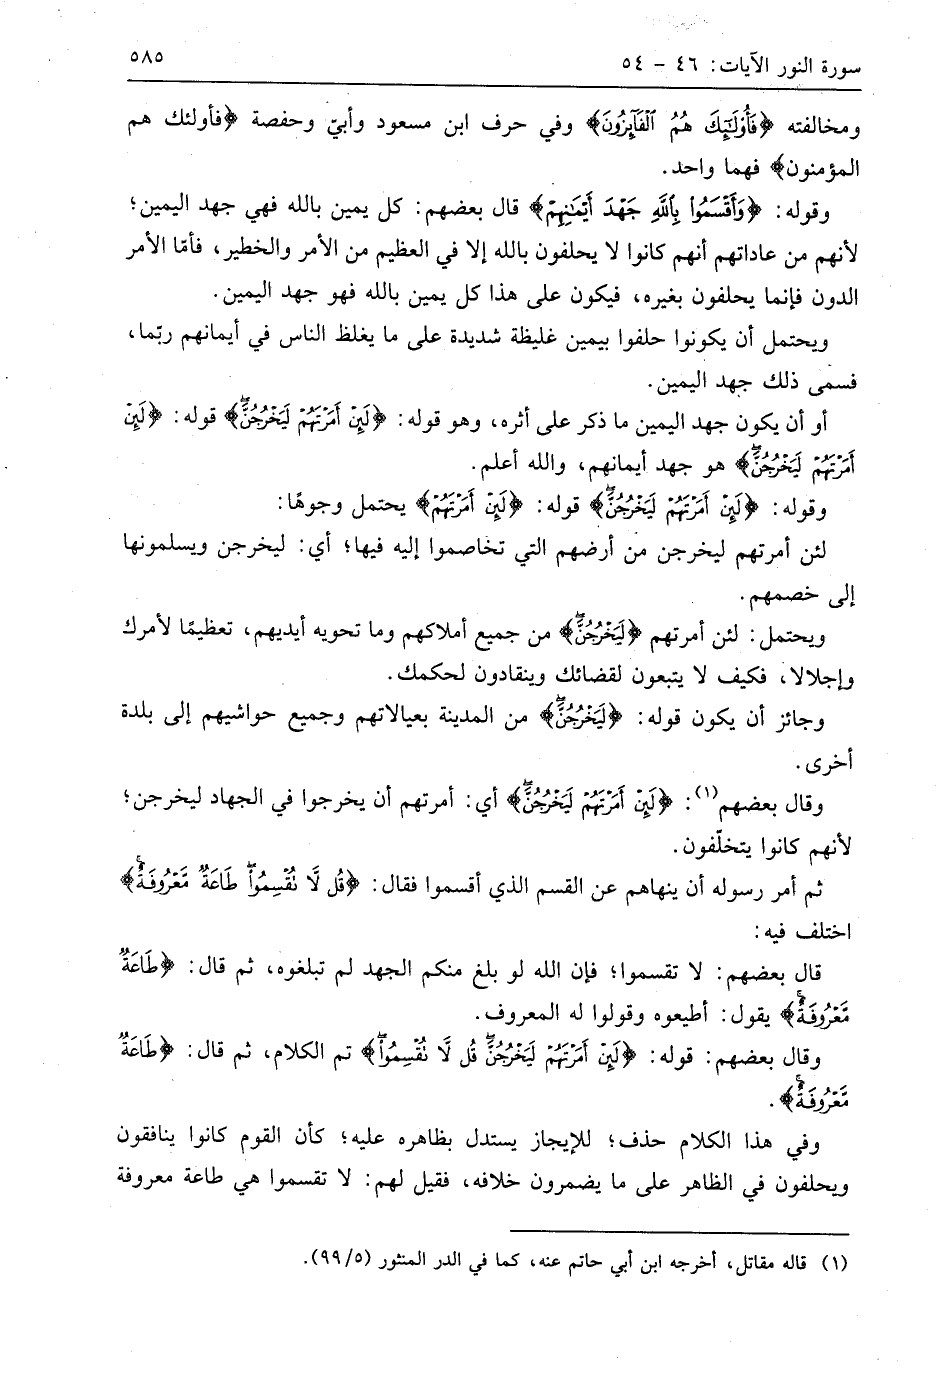 سورة النور الآيات: ٤٦ - ٥٤
٥٨٥
ومخالفته ﴿فَأُوْلَٰٓئِكَ هُمُ ٱلْفَآئِزُونَ﴾ وفي حرف ابن مسعود وأبيّ وحفصة ﴿فأولئك هم
المؤمنون﴾ فهما واحد.
وقوله: ﴿وَأَقْسَمُوا۟ بِٱللَّهِ جَهْدَ أَيْمَٰنِهِمْ﴾ قال بعضهم: كل يمين بالله فهي جهد اليمين؛
لأنهم من عاداتهم أنهم كانوا لا يحلفون بالله إلا في العظيم من الأمر والخطير، فأمّا الأمر
الدون فإنما يحلفون بغيره، فيكون على هذا كل يمين بالله فهو جهد اليمين.
ويحتمل أن يكونوا حلفوا بيمين غليظة شديدة على ما يغلظ الناس في أيمانهم ربّما،
فسمى ذلك جهد اليمين.
أو أن يكون جهد اليمين ما ذكر على أثره، وهو قوله: ﴿لَئِنْ أَمَرْتَهُمْ لَيَخْرُجُنَّۖ﴾ قوله: ﴿لَئِنْ
أَمَرْتَهُمْ لَيَخْرُجُنَّۖ﴾ هو جهد أيمانهم، والله أعلم.
وقوله: ﴿لَئِنْ أَمَرْتَهُمْ لَيَخْرُجُنَّۖ﴾ قوله: ﴿لَئِنْ أَمَرْتَهُمْ﴾ يحتمل وجوهًا:
لئن أمرتهم ليخرجن من أرضهم التي تخاصموا إليه فيها؛ أي: ليخرجن ويسلمونها
إلى خصمهم.
ويحتمل: لئن أمرتهم ﴿لَيَخْرُجُنَّۖ﴾ من جميع أملاكهم وما تحويه أيديهم، تعظيمًا لأمرك
وإجلالا، فكيف لا يتبعون لقضائك وينقادون لحكمك.
وجائز أن يكون قوله: ﴿لَيَخْرُجُنَّۖ﴾ من المدينة بعيالاتهم وجميع حواشيهم إلى بلدة
أخرى.
وقال بعضهم(١): ﴿لَئِنْ أَمَرْتَهُمْ لَيَخْرُجُنَّۖ﴾ أي: أمرتهم أن يخرجوا في الجهاد ليخرجن؛
لأنهم كانوا يتخلّفون.
ثم أمر رسوله أن ينهاهم عن القسم الذي أقسموا فقال: ﴿قُل لَّا تُقْسِمُوا۟ۖ طَاعَةٌ مَّعْرُوفَةٌۚ﴾
اختلف فيه:
قال بعضهم: لا تقسموا؛ فإن الله لو بلغ منكم الجهد لم تبلغوه، ثم قال: ﴿طَاعَةٌ
مَّعْرُوفَةٌۚ﴾ يقول: أطيعوه وقولوا له المعروف.
وقال بعضهم: قوله: ﴿لَئِنْ أَمَرْتَهُمْ لَيَخْرُجُنَّۖ قُل لَّا تُقْسِمُوا۟ۖ﴾ تم الكلام، ثم قال: ﴿طَاعَةٌ
مَّعْرُوفَةٌۚ﴾.
وفي هذا الكلام حذف؛ للإيجاز يستدل بظاهره عليه؛ كأن القوم كانوا ينافقون
ويحلفون في الظاهر على ما يضمرون خلافه، فقيل لهم: لا تقسموا هي طاعة معروفة
(١) قاله مقاتل، أخرجه ابن أبي حاتم عنه، كما في الدر المنثور (٩٩/٥).